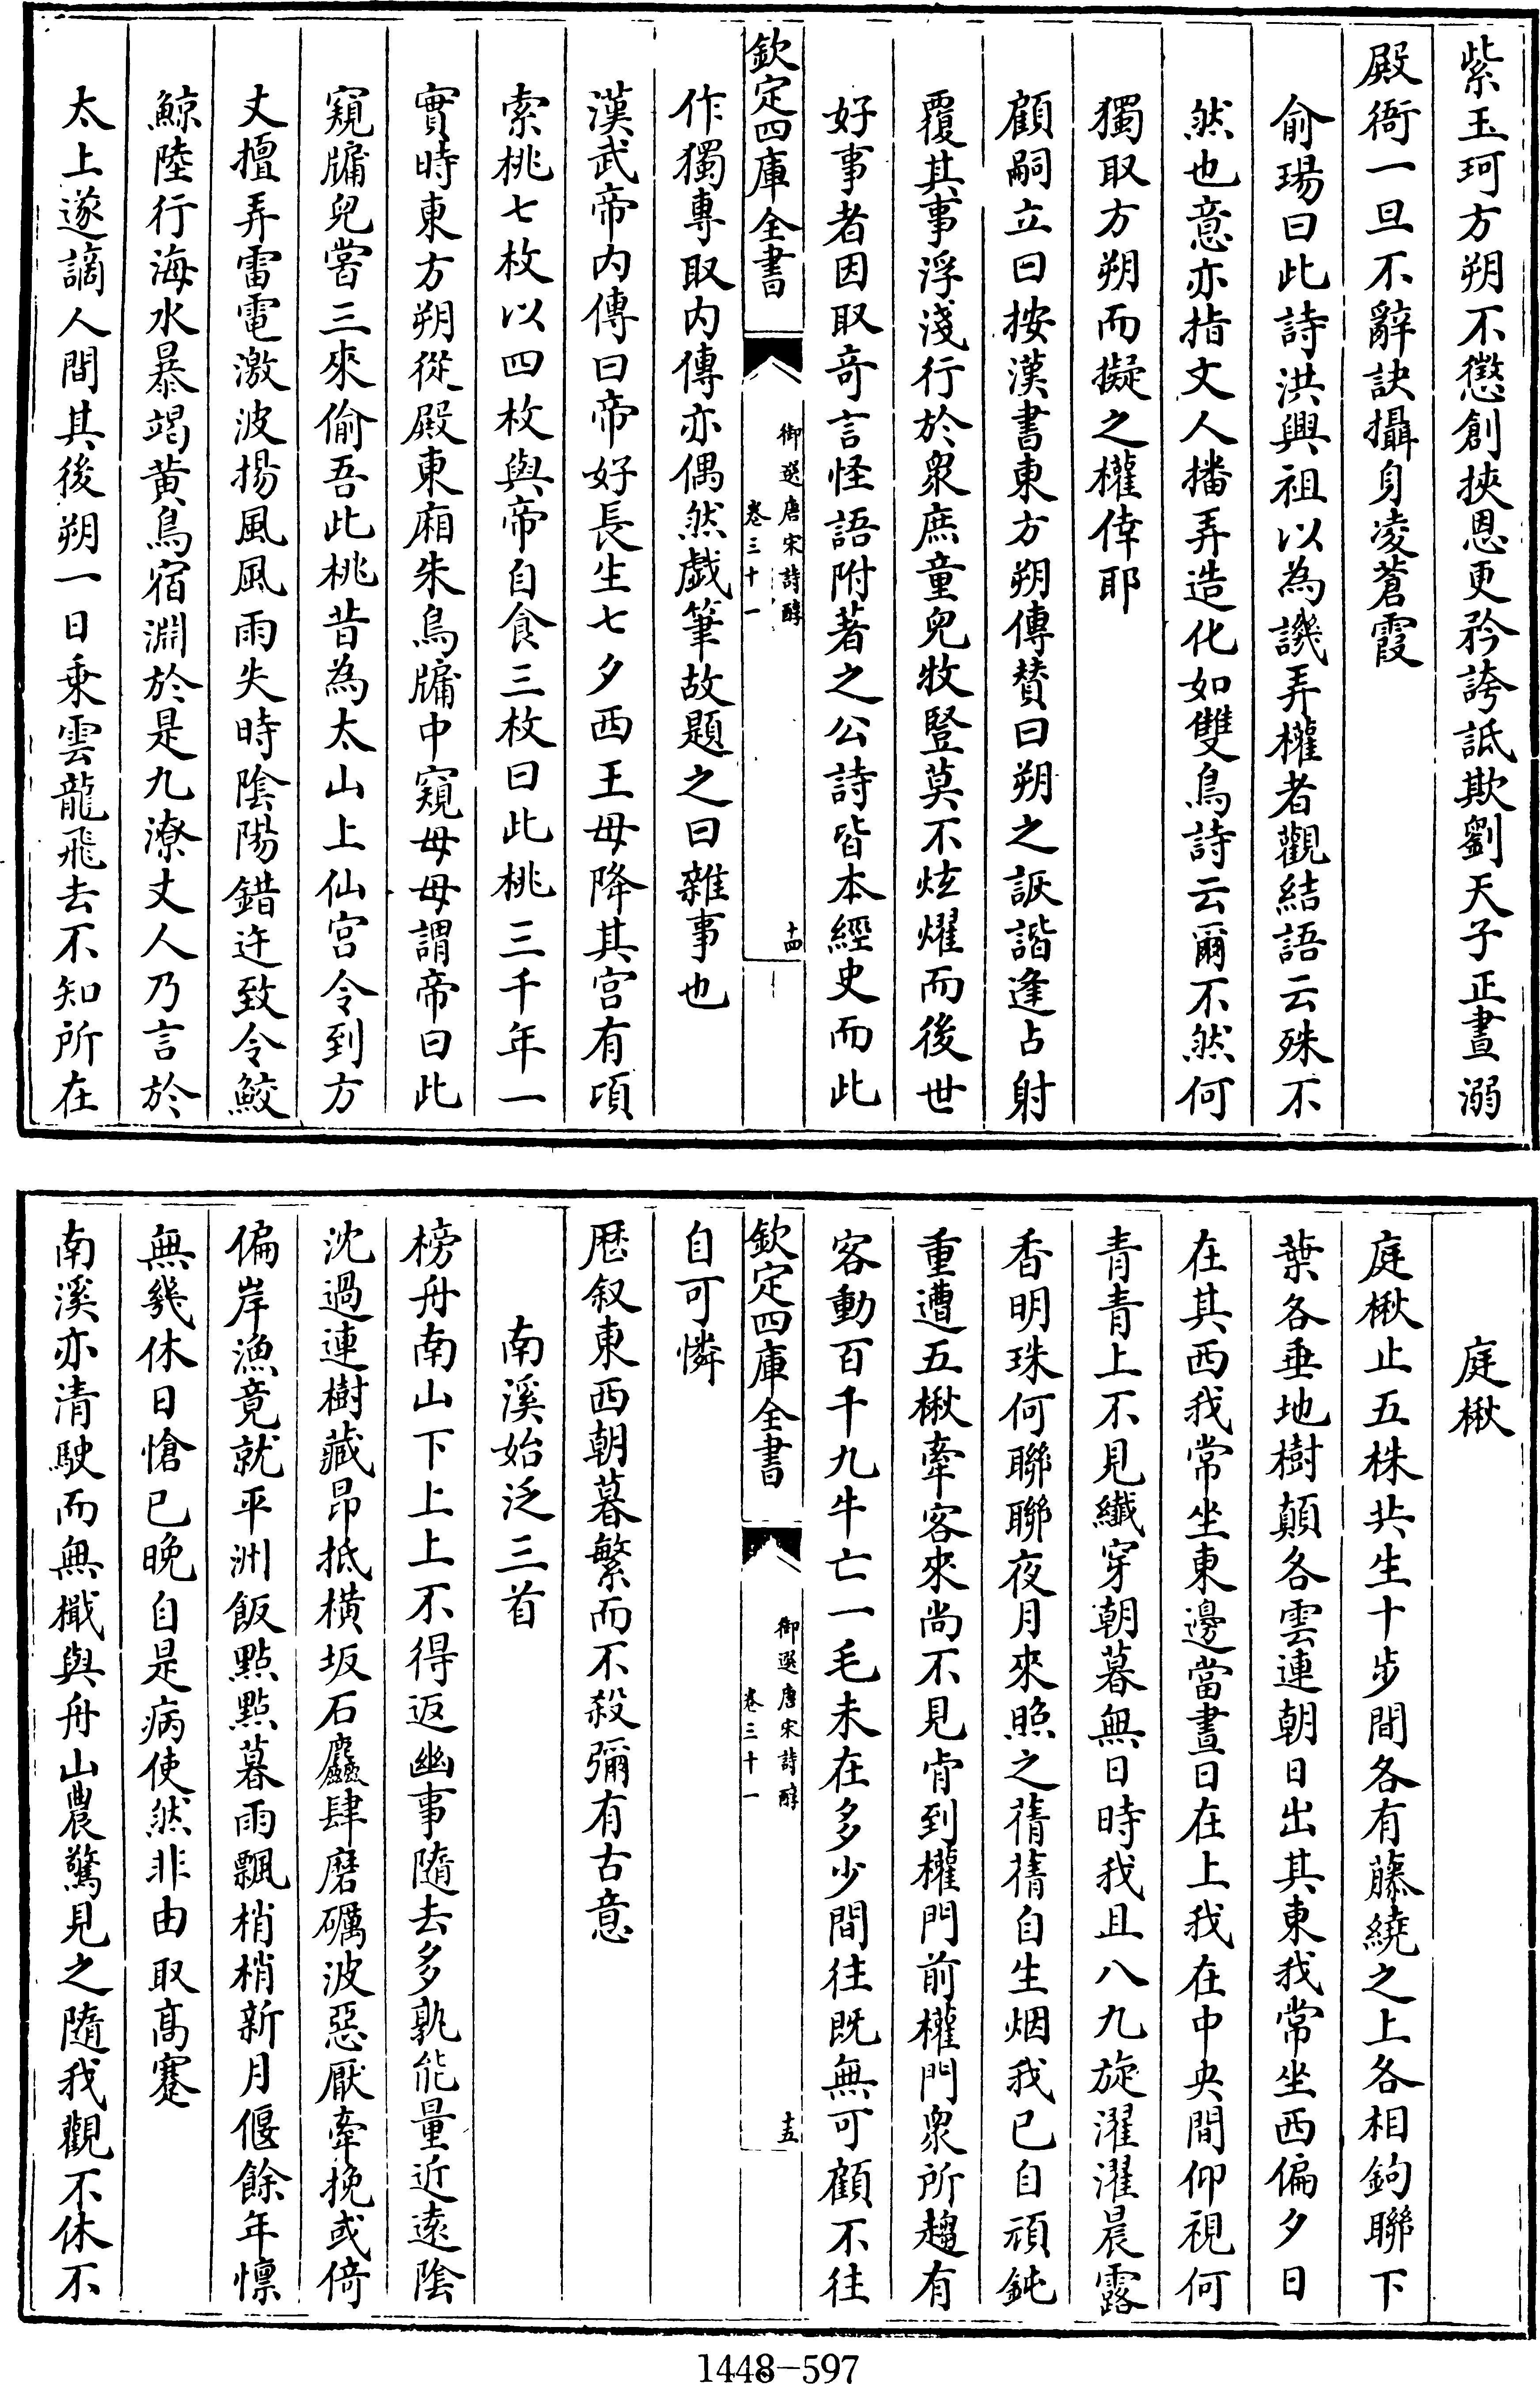 紫玉珂方朔不懲創挾恩更矜誇詆欺劉天子正晝溺
殿衙一旦不辭訣攝身凌蒼霞
俞瑒曰此詩洪興祖以為譏弄權者觀結語云殊不
然也意亦指文人播弄造化如雙鳥詩云爾不然何
獨取方朔而擬之權倖耶
顧嗣立曰按漢書東方朔傳贊曰朔之詼諧逢占射
覆其事浮淺行於衆庶童兒牧豎莫不炫燿而後世
好事者因取奇言怪語附著之公詩皆本經史而此
欽定四庫全書
御選唐宋詩醇
卷三十一
十四
作獨專取内傳亦偶然戯筆故題之曰雜事也
漢武帝内傳曰帝好長生七夕西王母降其宫有頃
索桃七枚以四枚與帝自食三枚曰此桃三千年一
實時東方朔從殿東廂朱鳥牖中窺母母謂帝曰此
窺牖兒嘗三來偷吾此桃昔為太山上仙宫令到方
丈擅弄雷電激波揚風風雨失時陰陽錯迕致令鮫
鯨陸行海水暴竭黄鳥宿淵於是九潦丈人乃言於
太上遂謫人間其後朔一日乗雲龍飛去不知所在
庭楸
庭楸止五株共生十步間各有藤繞之上各相鉤聯下
葉各垂地樹顛各雲連朝日出其東我常坐西偏夕日
在其西我常坐東邊當晝日在上我在中央間仰視何
青青上不見纖穿朝暮無日時我且八九旋濯濯晨露
香明珠何聯聯夜月來照之蒨蒨自生烟我已自頑鈍
重遭五楸牽客來尚不見肯到權門前權門衆所趨有
客動百千九牛亡一毛未在多少間往既無可顧不往
欽定四庫全書
御選唐宋詩醇
卷三十一
十五
自可憐
厯叙東西朝暮繁而不殺彌有古意
南溪始泛三首
榜舟南山下上上不得返幽事隨去多孰能量近遠陰
沈過連樹藏昻抵横坂石麤肆磨礪波惡厭牽挽或倚
偏岸漁竟就平洲飯點點暮雨飄梢梢新月偃餘年懍
無幾休日愴已晚自是病使然非由取髙蹇
南溪亦清駛而無檝與舟山農驚見之隨我觀不休不
1448-597